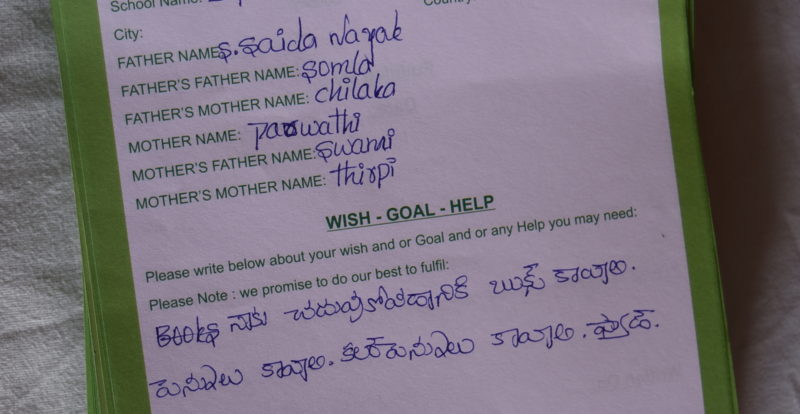 School Name:
City:
FATHER NAME: S. Saida Nayak
FATHER'S FATHER NAME: Somla
FATHER'S MOTHER NAME: chilaka
MOTHER NAME: parwathi
MOTHER'S FATHER NAME: swami
MOTHER'S MOTHER NAME: thirpi
WISH - GOAL - HELP
Please write below about your wish and or Goal and or any Help you may need:
Please Note : we promise to do our best to fulfil:
Books నాకు చదువుకోవడానికి బుక్స్ కావాలి.
కావాలి. కావాలి.